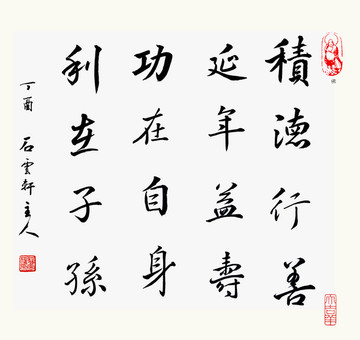 積德行善
延年益壽
功在自身
利在子孫
丁酉 石雲軒主人